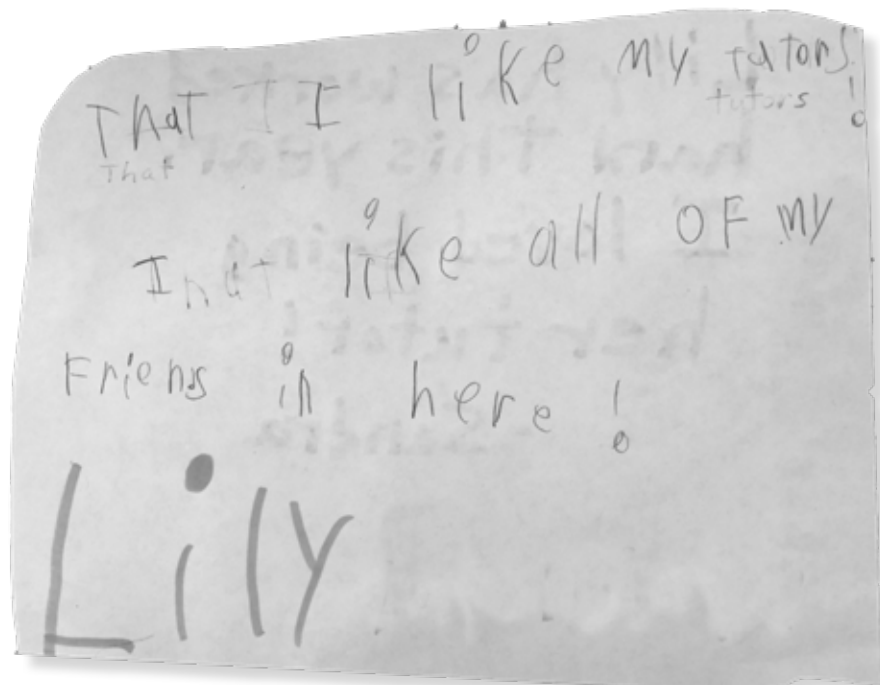 That I I like my tators!
That tutors
I like all OF my
Friens in here!
Lily